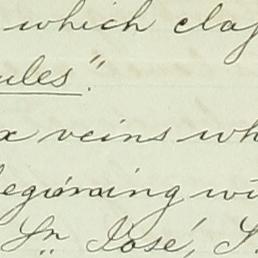 which clas
ules."
x veins wh
beginning wi
Sn José, S